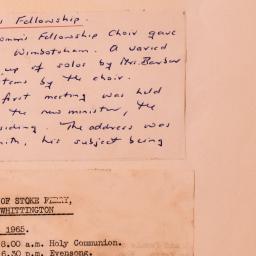 Fellowship.
Fellowship Choir gave
Wimbotsham. A varied
up of solos by Mrs. Barber
items by the choir.
first meeting was held
the new minister, the
siding. The address was
his subject being
OF STOKE FERRY,
WHITTINGTON
1965.
8.00 a.m. Holy Communion.
6.30 p.m. Evensong.